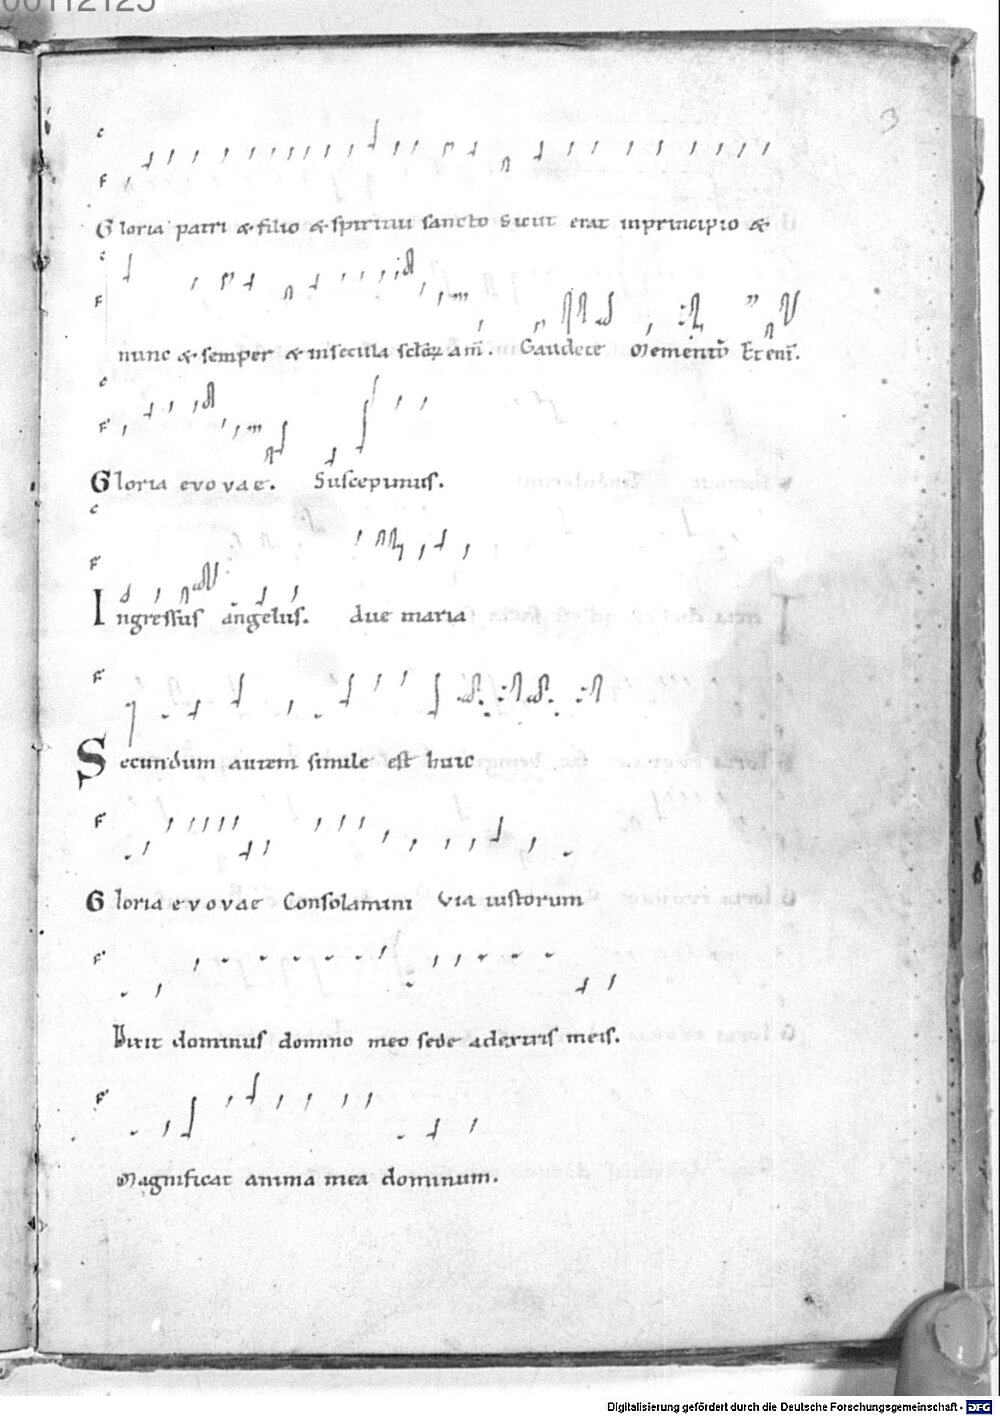 00112125
3
c
F
Gloria patri & filio & spiritui sancto Sicut erat inprincipio &
c
F
nunc & semper & insecula sclōꝝ am̄. Gaudete Memento Eteni.
c
F
Gloria evovae. Suscepimus.
c
F
Ingressus angelus. due maria
F
Secundum autem simile est huic
F
Gloria evovae Consolamini Via iustorum
F
Dixit dominus domino meo sede adextris meis.
F
Magnificat anima mea dominum.
Digitalisierung gefördert durch die Deutsche Forschungsgemeinschaft - DFG